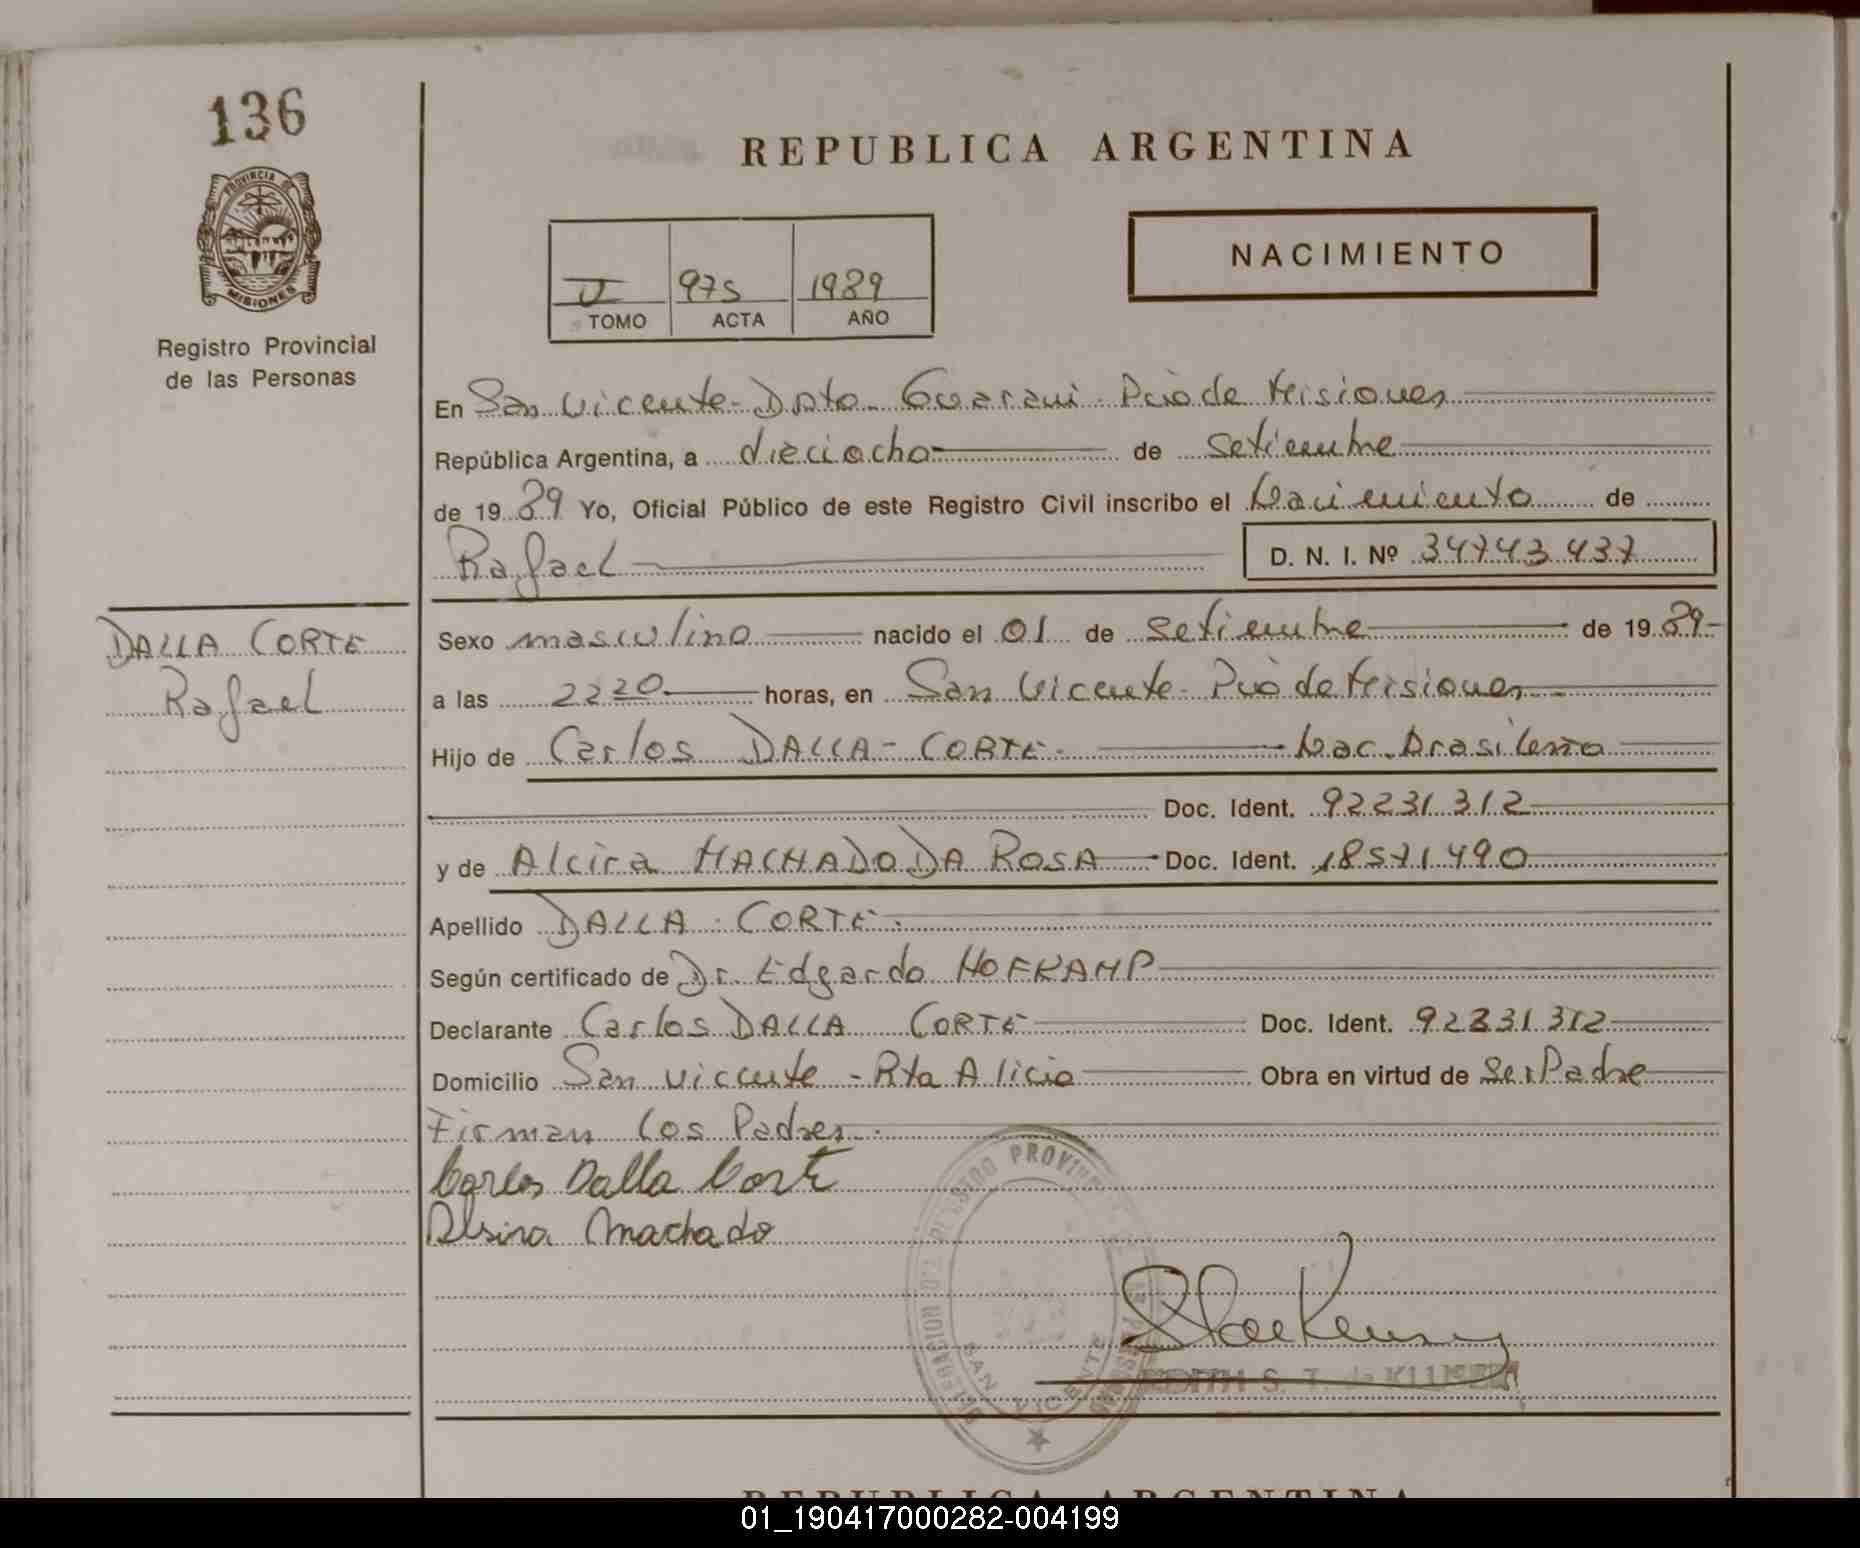 136
REPUBLICA ARGENTINA
PROVINCIA DE
MISIONES
Registro Provincial
de las Personas
NACIMIENTO
975 1989
TOMO ACTA AÑO
En San Vicente - Dpto. Guarani - Pcia de Misiones
República Argentina, a dieciocho de setiembre
de 1989 Yo, Oficial Público de este Registro Civil inscribo el Nacimiento de
Rafael D. N. I. Nº 34743437
DALLA CORTE
Rafael
Sexo masculino nacido el 01 de setiembre de 1989
a las 2220 horas, en San Vicente - Pcia de Misiones
Hijo de Carlos DALLA-CORTE. Nac. Brasileña
Doc. Ident. 92231312
y de Alcira MACHADO DA ROSA Doc. Ident. 18571490
Apellido DALLA CORTE.
Según certificado de Dr. Edgardo HOFKAMP
Declarante Carlos DALLA CORTE Doc. Ident. 92231312
Domicilio San Vicente - Pta Alicia Obra en virtud de Ser Padre
Firman los Padres.
Carlos Dalla Corte
Alsira Machado
REGISTRO PROVINCIAL DE LAS PERSONAS
DELEGACION
SAN VICENTE
EDITH S. T. de
REPUBLICA ARGENTINA
01_190417000282-004199